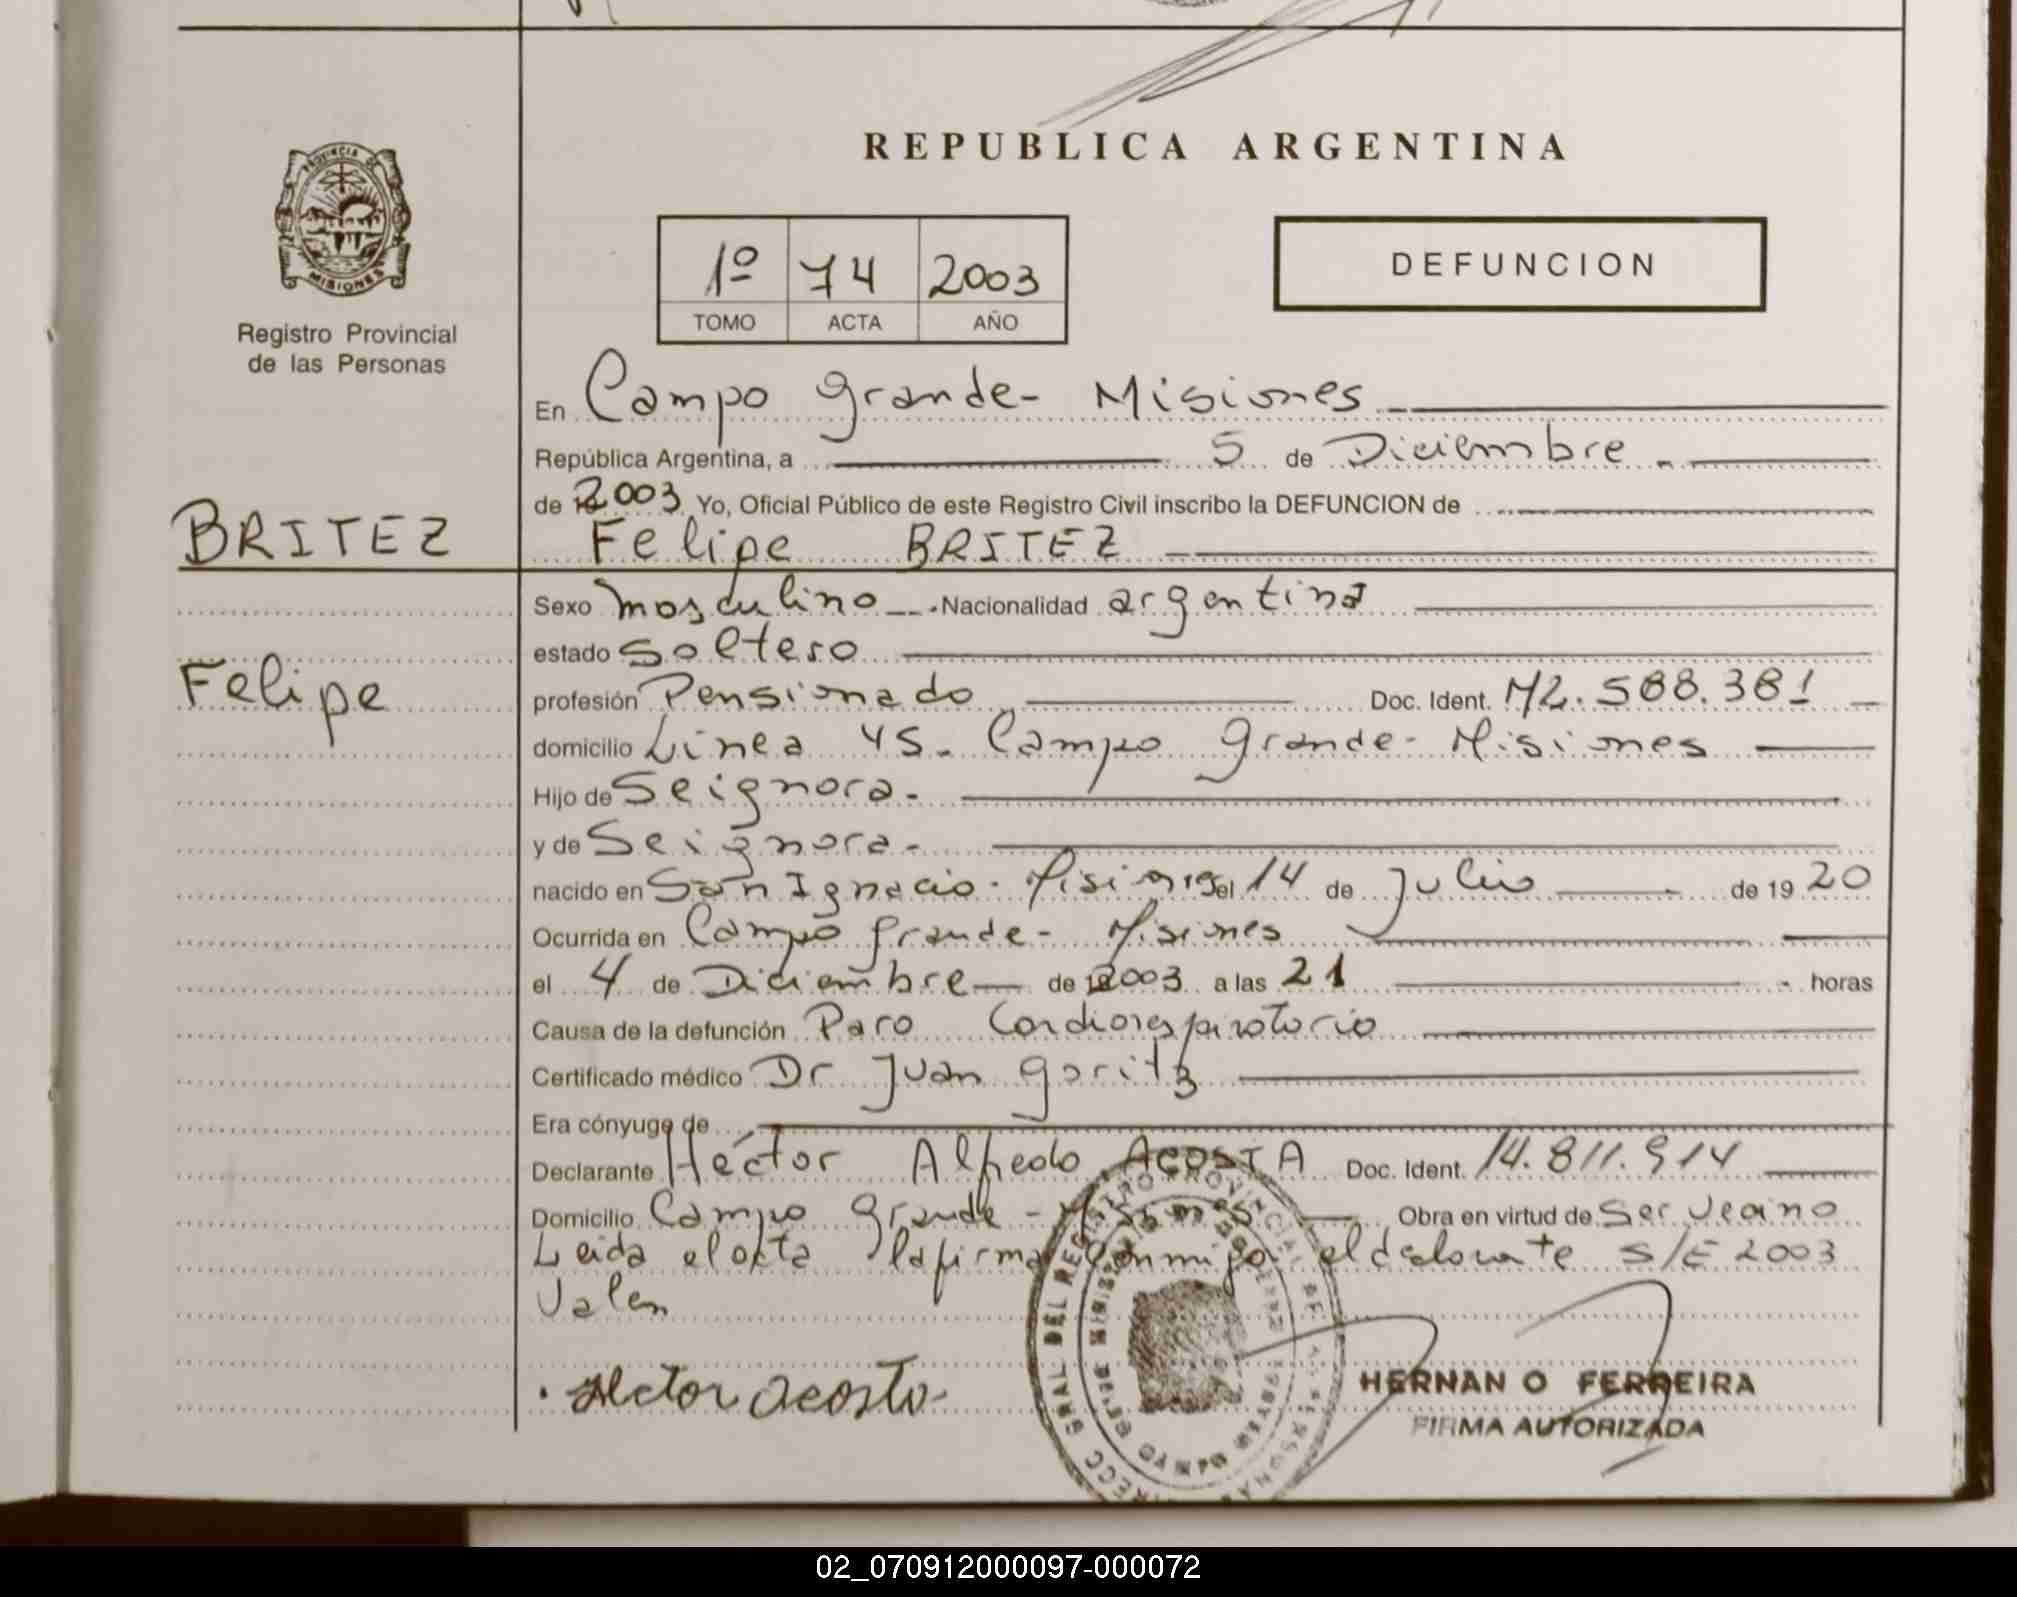 REPUBLICA ARGENTINA
PROVINCIA DE
MISIONES
Registro Provincial
de las Personas
1º 74 2003
TOMO ACTA AÑO
DEFUNCION
En Campo Grande - Misiones
República Argentina, a 5 de Diciembre
de 2003 Yo, Oficial Público de este Registro Civil inscribo la DEFUNCION de
BRITEZ
Felipe BRITEZ
Sexo masculino Nacionalidad argentina
estado soltero
Felipe
profesión Pensionado Doc. Ident. M2.588.381
domicilio Linea 45. Campo Grande - Misiones
Hijo de Seignora.
y de Seignora.
nacido en San Ignacio - Misiones el 14 de Julio de 1920
Ocurrida en Campo Grande - Misiones
el 4 de Diciembre de 2003 a las 21 horas
Causa de la defunción Paro Cardiorespiratorio
Certificado médico Dr Juan Goritz
Era cónyuge de
Declarante Héctor Alfredo ACOSTA Doc. Ident. 14.811.914
Domicilio Campo Grande - Misiones Obra en virtud de Ser Vecino
Leida el acta la firma conmigo el declarante S/E 2003
Valen
Hector acosta
HERNAN O FERREIRA
FIRMA AUTORIZADA
02_070912000097-000072